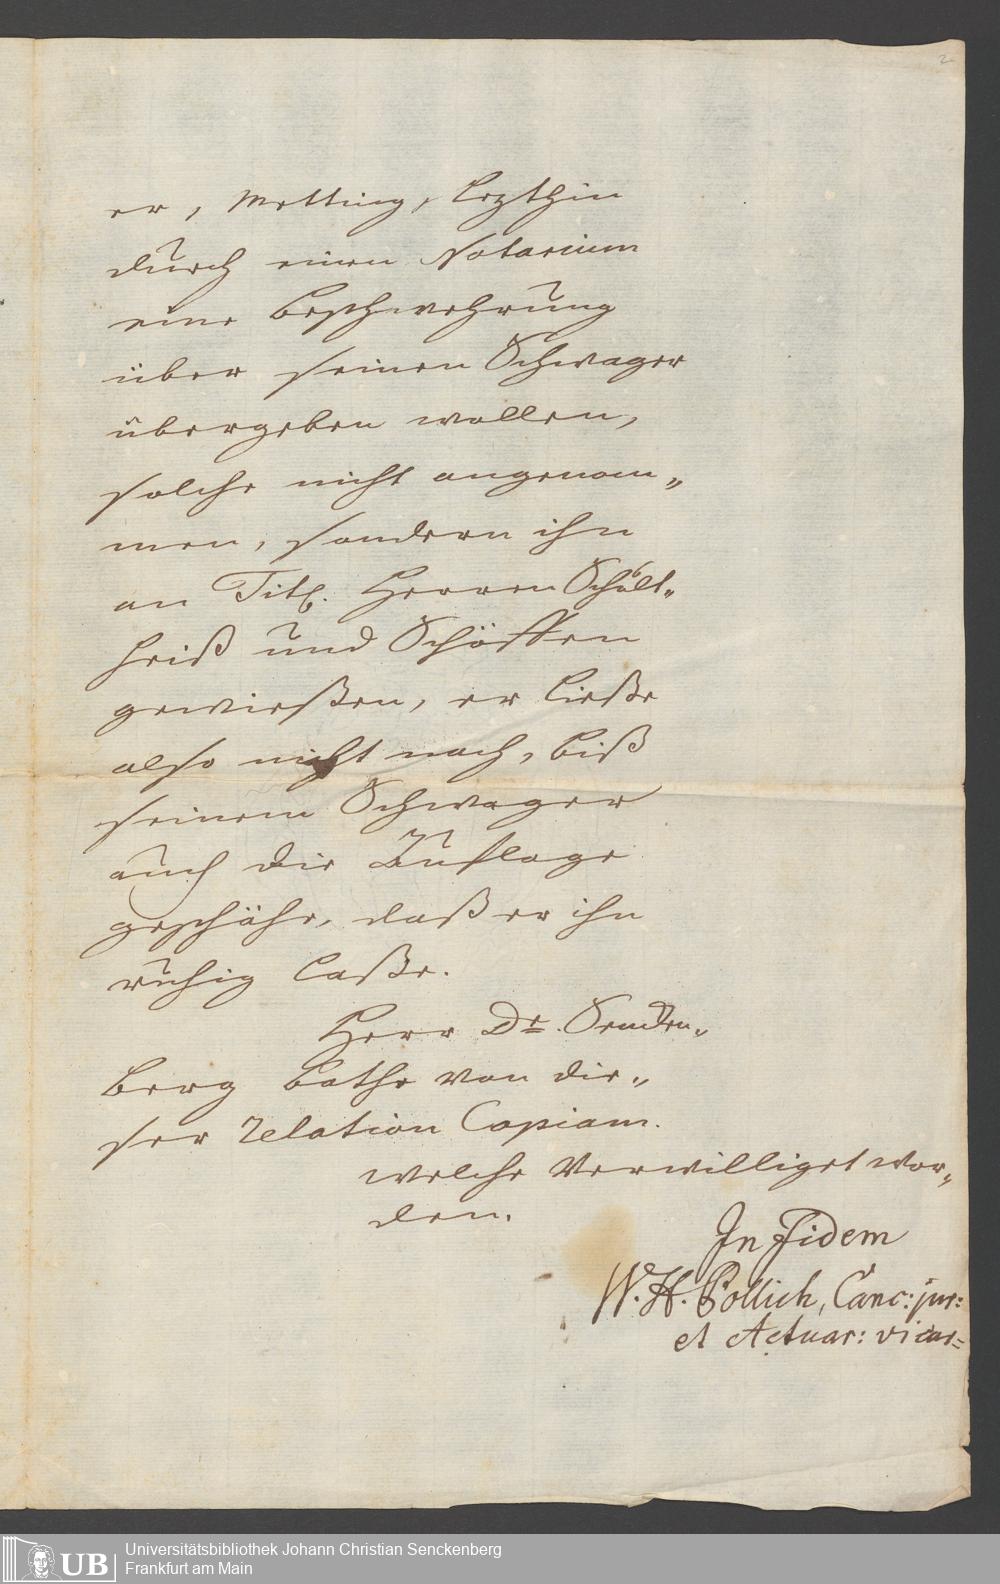 2
er, Metting, lezthin
durch einen Notarium
eine beschwehrung
über seinen Schwager
übergeben wollen,
solche nicht angenom„
men, sondern ihn
an Tit. Herren Schult„
heiß und Schöffen
gewießen, er ließe
also nicht nach, biß
seinem Schwager
auch die Auflage
geschähe, daß er ihn
ruhig laße.
Herr Dr. Sencken„
berg bathe von die„
ser relation Copiam.
welche verwilliget wor„
den.
In Fidem
W. H. Pollich, Canc: jur:
et Actuar: vicar=
UB
Universitätsbibliothek Johann Christian Senckenberg
Frankfurt am Main